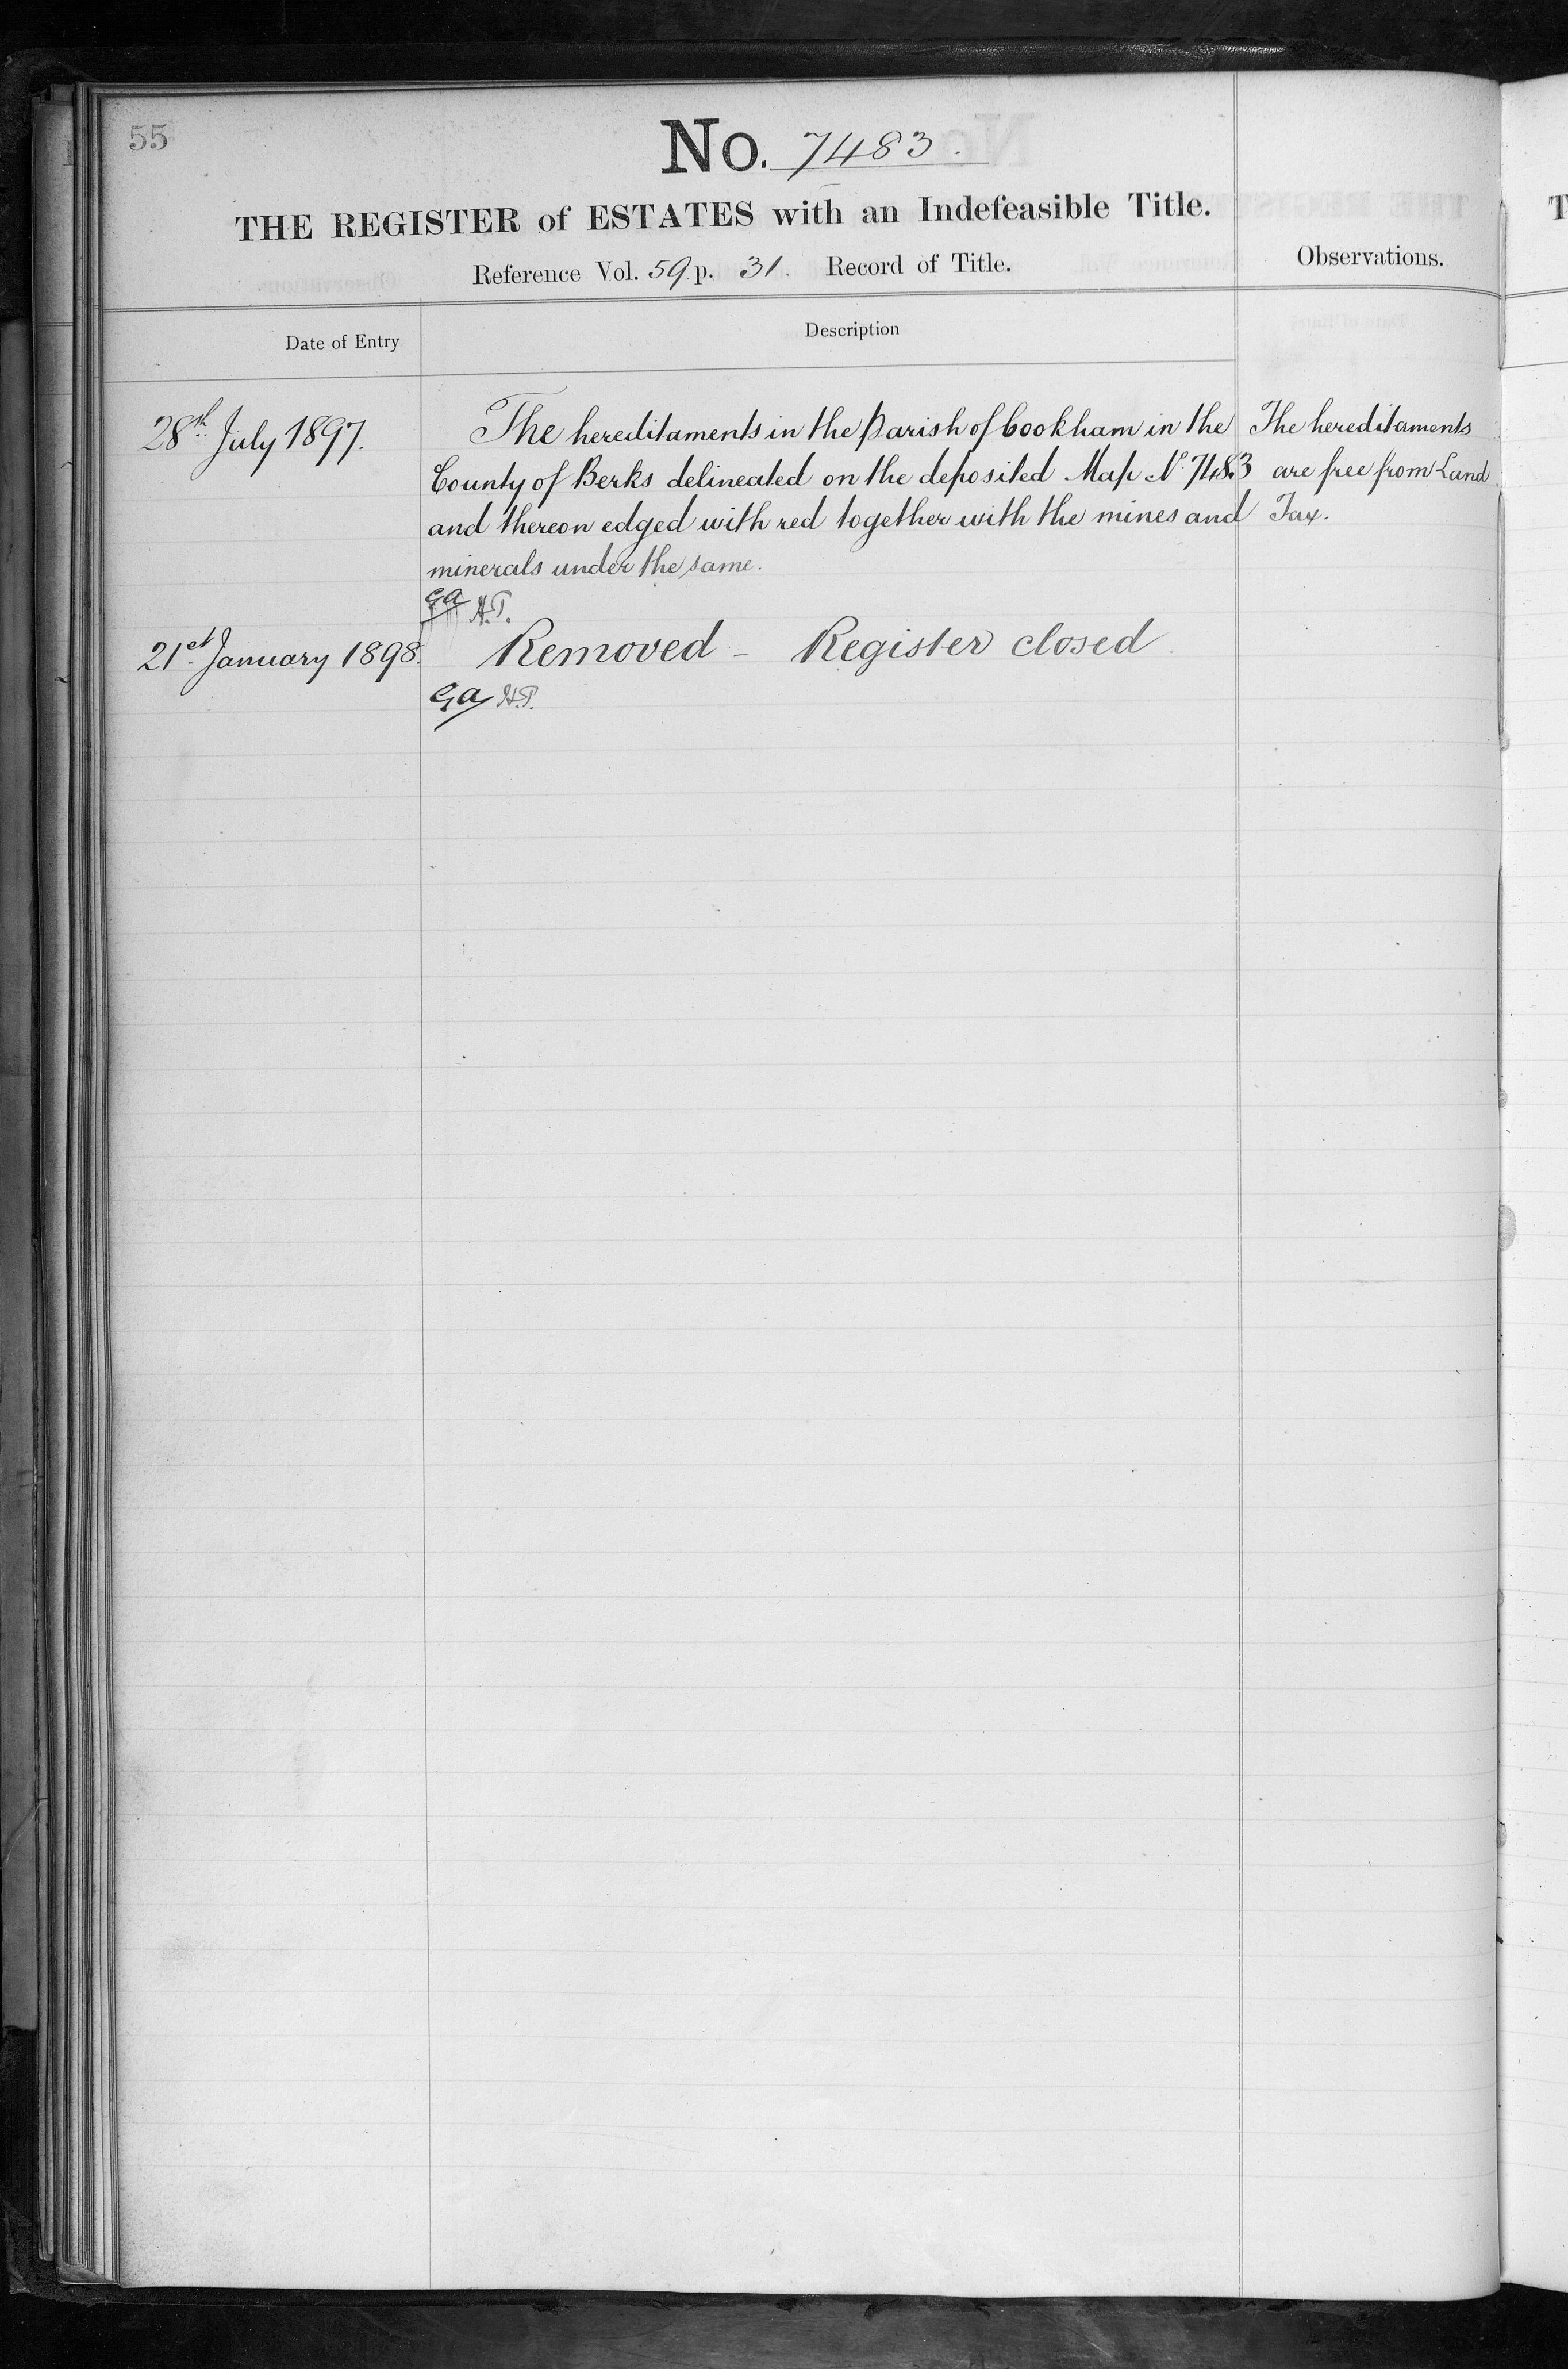 55
No. 7483.
THE REGISTER of ESTATES with an Indefeasible Title.
Reference Vol. 59. p. 31. Record of Title.
Observations.
Date of Entry
Description
28th July 1897.
The hereditaments in the Parish of Cookham in the
County of Berks delineated on the deposited Map No. 7483
and thereon edged with red together with the mines and
minerals under the same.
The hereditaments
are free from Land
Tax.
GA H.T.
21st January 1898.
Removed - Register closed.
GA H.T.